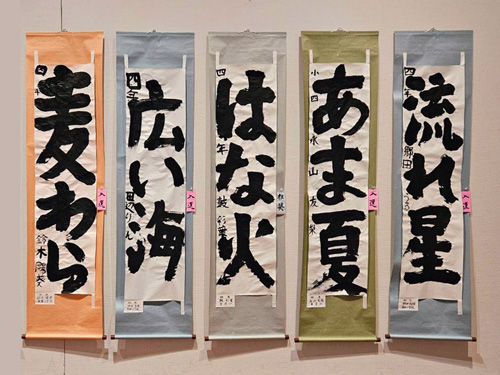 麦わら
四年
鈴木
入選
広い海
四年
はな火
四年
あま夏
小四
永山友梨
入選
流れ星
四年
入選